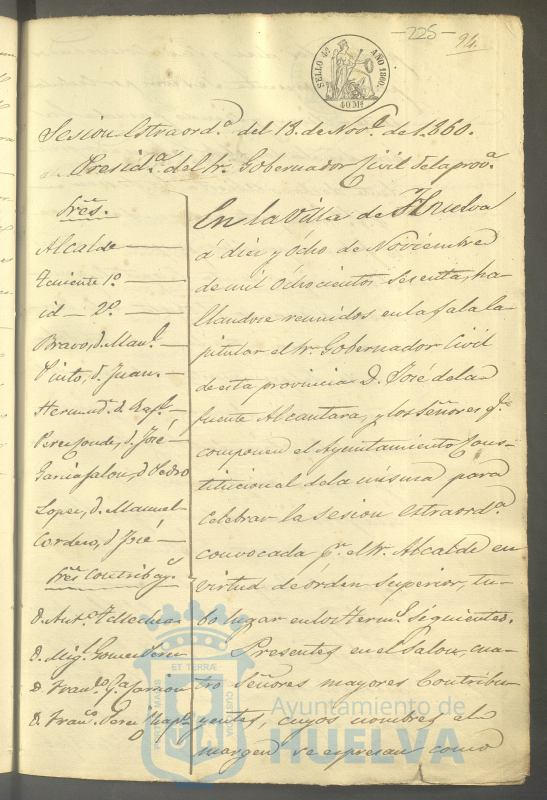 -225-
94.
SELLO 4º AÑO 1860.
40 Ms
Sesion Estraordª del 18 de Novᵉ de 1860.
Presidª del Sr. Gobernador Civil de la provª
Sres.
Alcalde
Teniente 1º
id - 2º
Bravo, d. Manl.
Pinto, d. Juan.
Hernandz. d. Rafl.
Perez Conde, d. José
Garcia Jalon, d. Pedro
Lopez, d. Manuel
Cordero, d. José
Sres. Contribuy.
d. Antº
d. Migl. Gomez
d. Franº. Gª
d. Franº. Perez
En la Villa de Huelva
á diez y Ocho de Noviembre
de mil Ochocientos Sesenta, ha-
llandose reunidos en la sala Ca-
pitular el Sr. Gobernador Civil
de esta provincia D. José de la
fuente Alcantara, y los Señores qᵉ
componen el Ayuntamiento Cons-
titucional de la misma para
Celebrar la Sesion estraordª
convocada pr. el Sr. Alcalde en
virtud de órden Superior, tu-
bo lugar en los term.s Siguientes.
Presentes en el Salon, cua-
tro Señores mayores Contribu-
yentes, cuyos nombres al
margen se espresan como
ET TERRAE
PORTUS MARIS
CUSTODIA
Ayuntamiento de
HUELVA